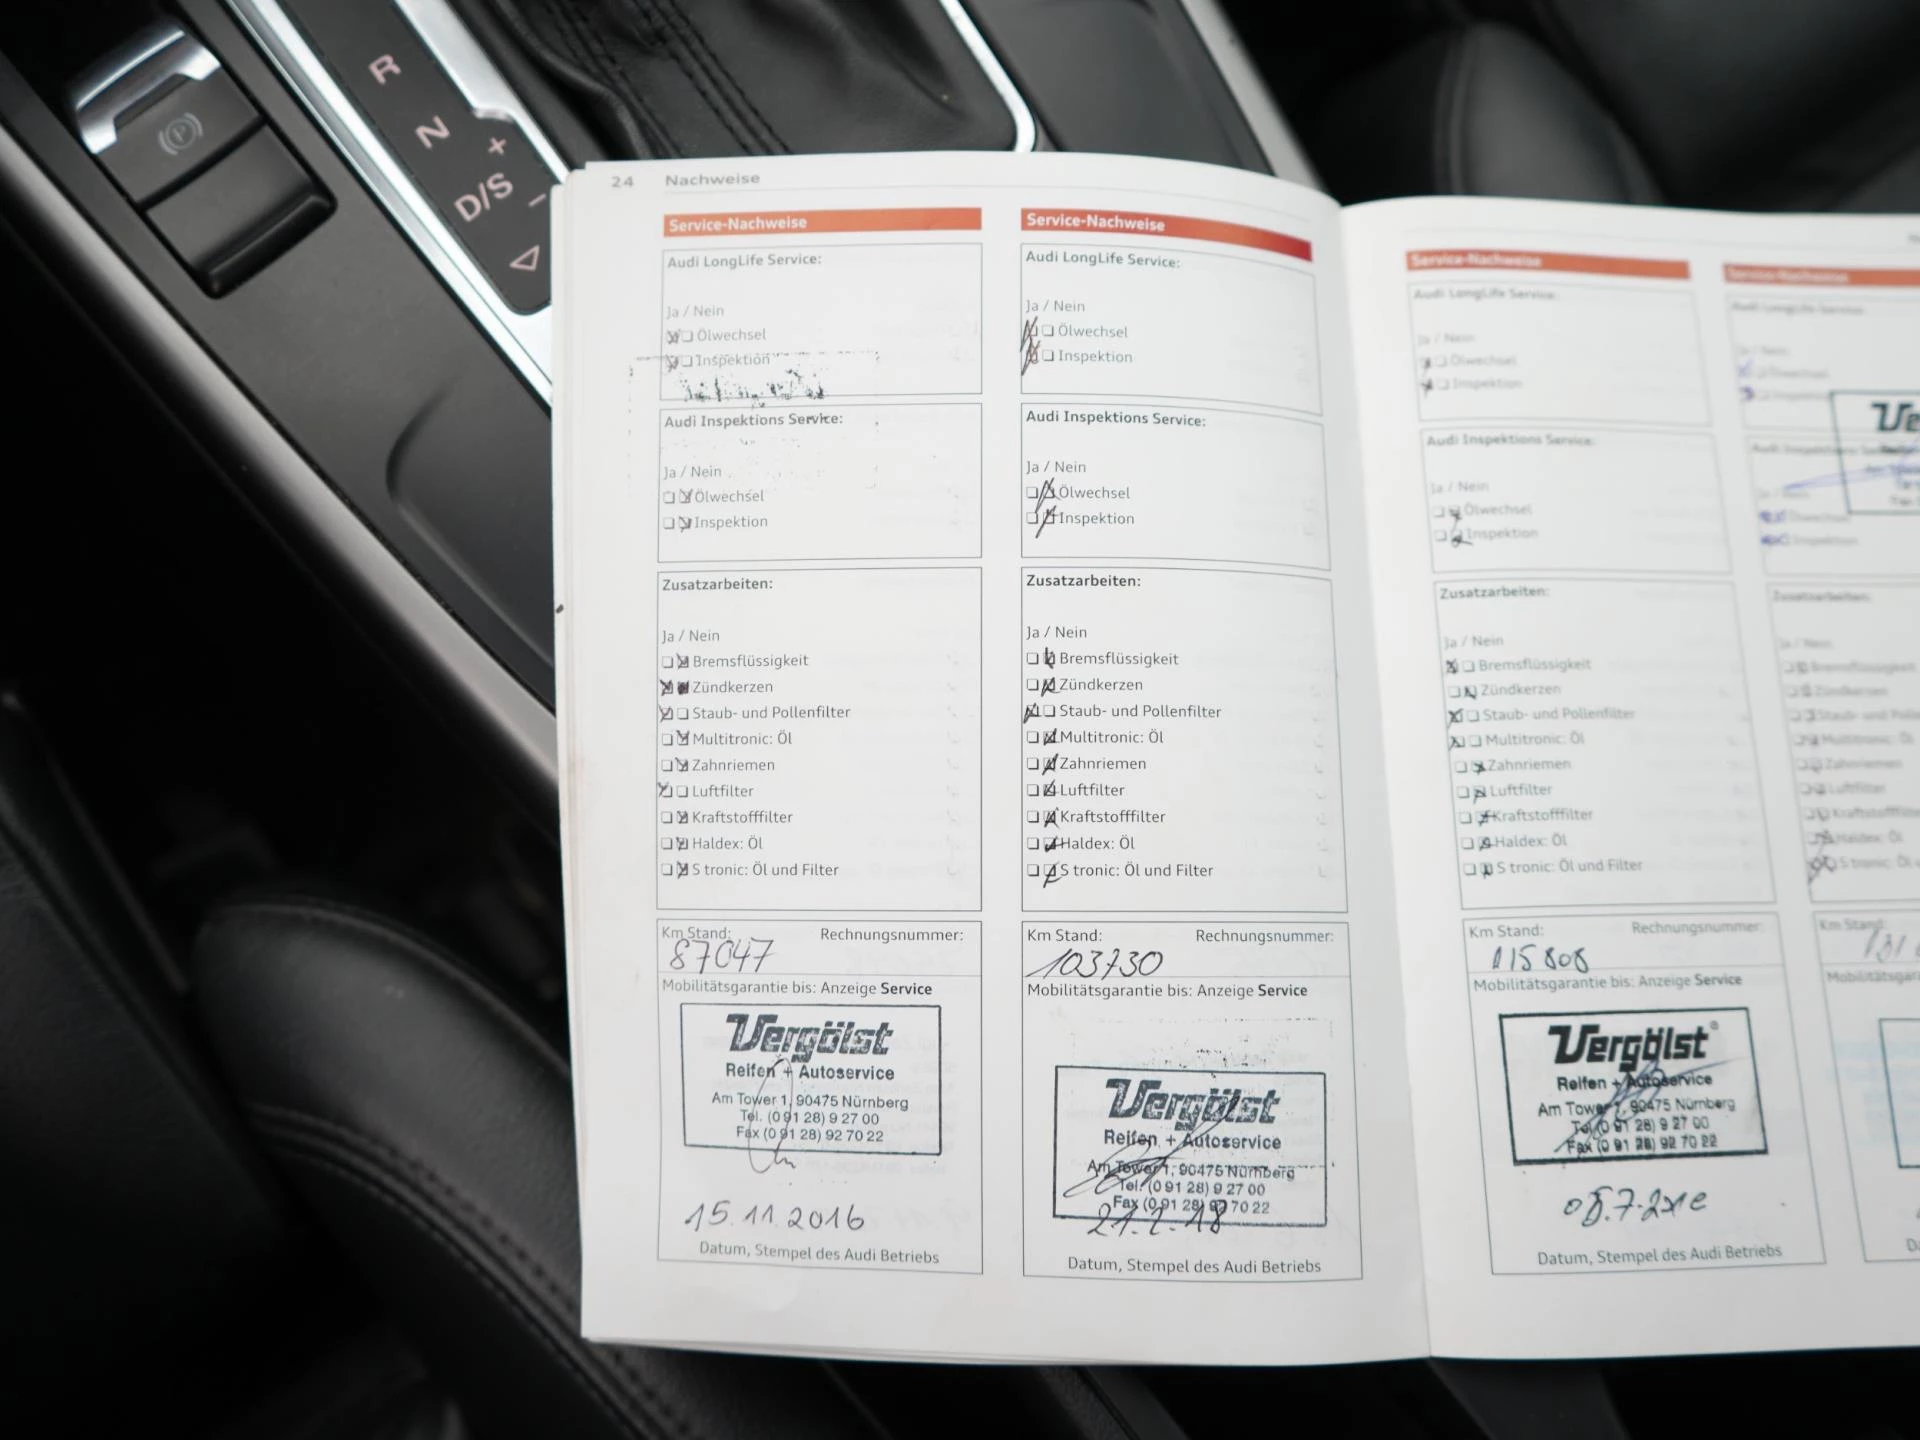 R
N
+
D/S
-
P
24 Nachweise
Service-Nachweise
Audi LongLife Service:
Ja / Nein
Ölwechsel
Inspektion
Audi Inspektions Service:
Ja / Nein
Ölwechsel
Inspektion
Zusatzarbeiten:
Ja / Nein
Bremsflüssigkeit
Zündkerzen
Staub- und Pollenfilter
Multitronic: Öl
Zahnriemen
Luftfilter
Kraftstofffilter
Haldex: Öl
S tronic: Öl und Filter
Km Stand: Rechnungsnummer:
87047
Mobilitätsgarantie bis: Anzeige Service
Vergölst
Reifen + Autoservice
Am Tower 1, 90475 Nürnberg
Tel. (0 91 28) 9 27 00
Fax (0 91 28) 92 70 22
15.11.2016
Datum, Stempel des Audi Betriebs
Service-Nachweise
Audi LongLife Service:
Ja / Nein
Ölwechsel
Inspektion
Audi Inspektions Service:
Ja / Nein
Ölwechsel
Inspektion
Zusatzarbeiten:
Ja / Nein
Bremsflüssigkeit
Zündkerzen
Staub- und Pollenfilter
Multitronic: Öl
Zahnriemen
Luftfilter
Kraftstofffilter
Haldex: Öl
S tronic: Öl und Filter
Km Stand: Rechnungsnummer:
103730
Mobilitätsgarantie bis: Anzeige Service
Vergölst
Reifen + Autoservice
Am Tower 1, 90475 Nürnberg
Tel. (0 91 28) 9 27 00
Fax (0 91 28) 92 70 22
21.2.18
Datum, Stempel des Audi Betriebs
Service-Nachweise
Audi LongLife Service:
Ja / Nein
Ölwechsel
Inspektion
Audi Inspektions Service:
Ja / Nein
Ölwechsel
Inspektion
Zusatzarbeiten:
Ja / Nein
Bremsflüssigkeit
Zündkerzen
Staub- und Pollenfilter
Multitronic: Öl
Zahnriemen
Luftfilter
Kraftstofffilter
Haldex: Öl
S tronic: Öl und Filter
Km Stand: Rechnungsnummer:
115808
Mobilitätsgarantie bis: Anzeige Service
Vergölst®
Reifen + Autoservice
Am Tower 1, 90475 Nürnberg
Tel. (0 91 28) 9 27 00
Fax (0 91 28) 92 70 22
Datum, Stempel des Audi Betriebs
Service-Nachweise
Audi LongLife Service:
Ja / Nein
Ölwechsel
Ve
Ölwechsel
Inspektion
Zusatzarbeiten:
Ja / Nein
Bremsflüssigkeit
Zündkerzen
Multitronic: Öl
Zahnriemen
Luftfilter
Haldex: Öl
Km Stand: